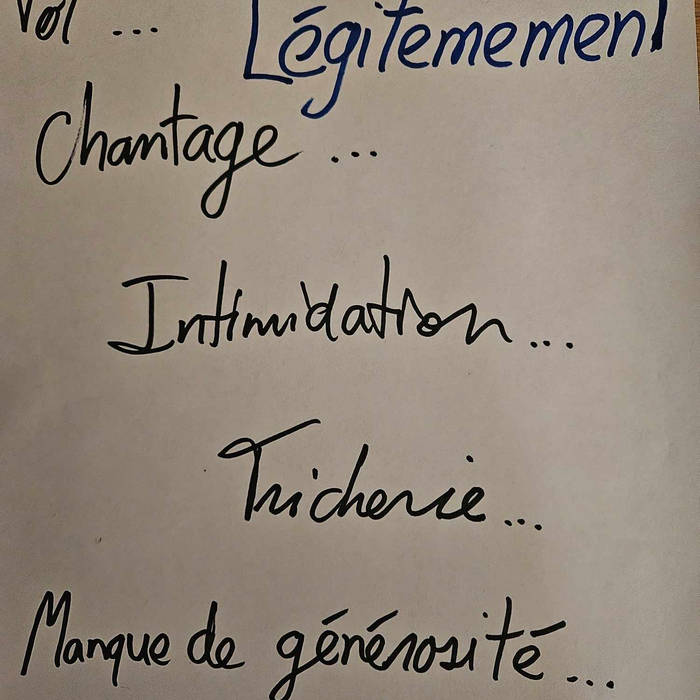 Vol ... Légitemement
Chantage ...
Intimidation ...
Tricherie ...
Manque de générosité ...